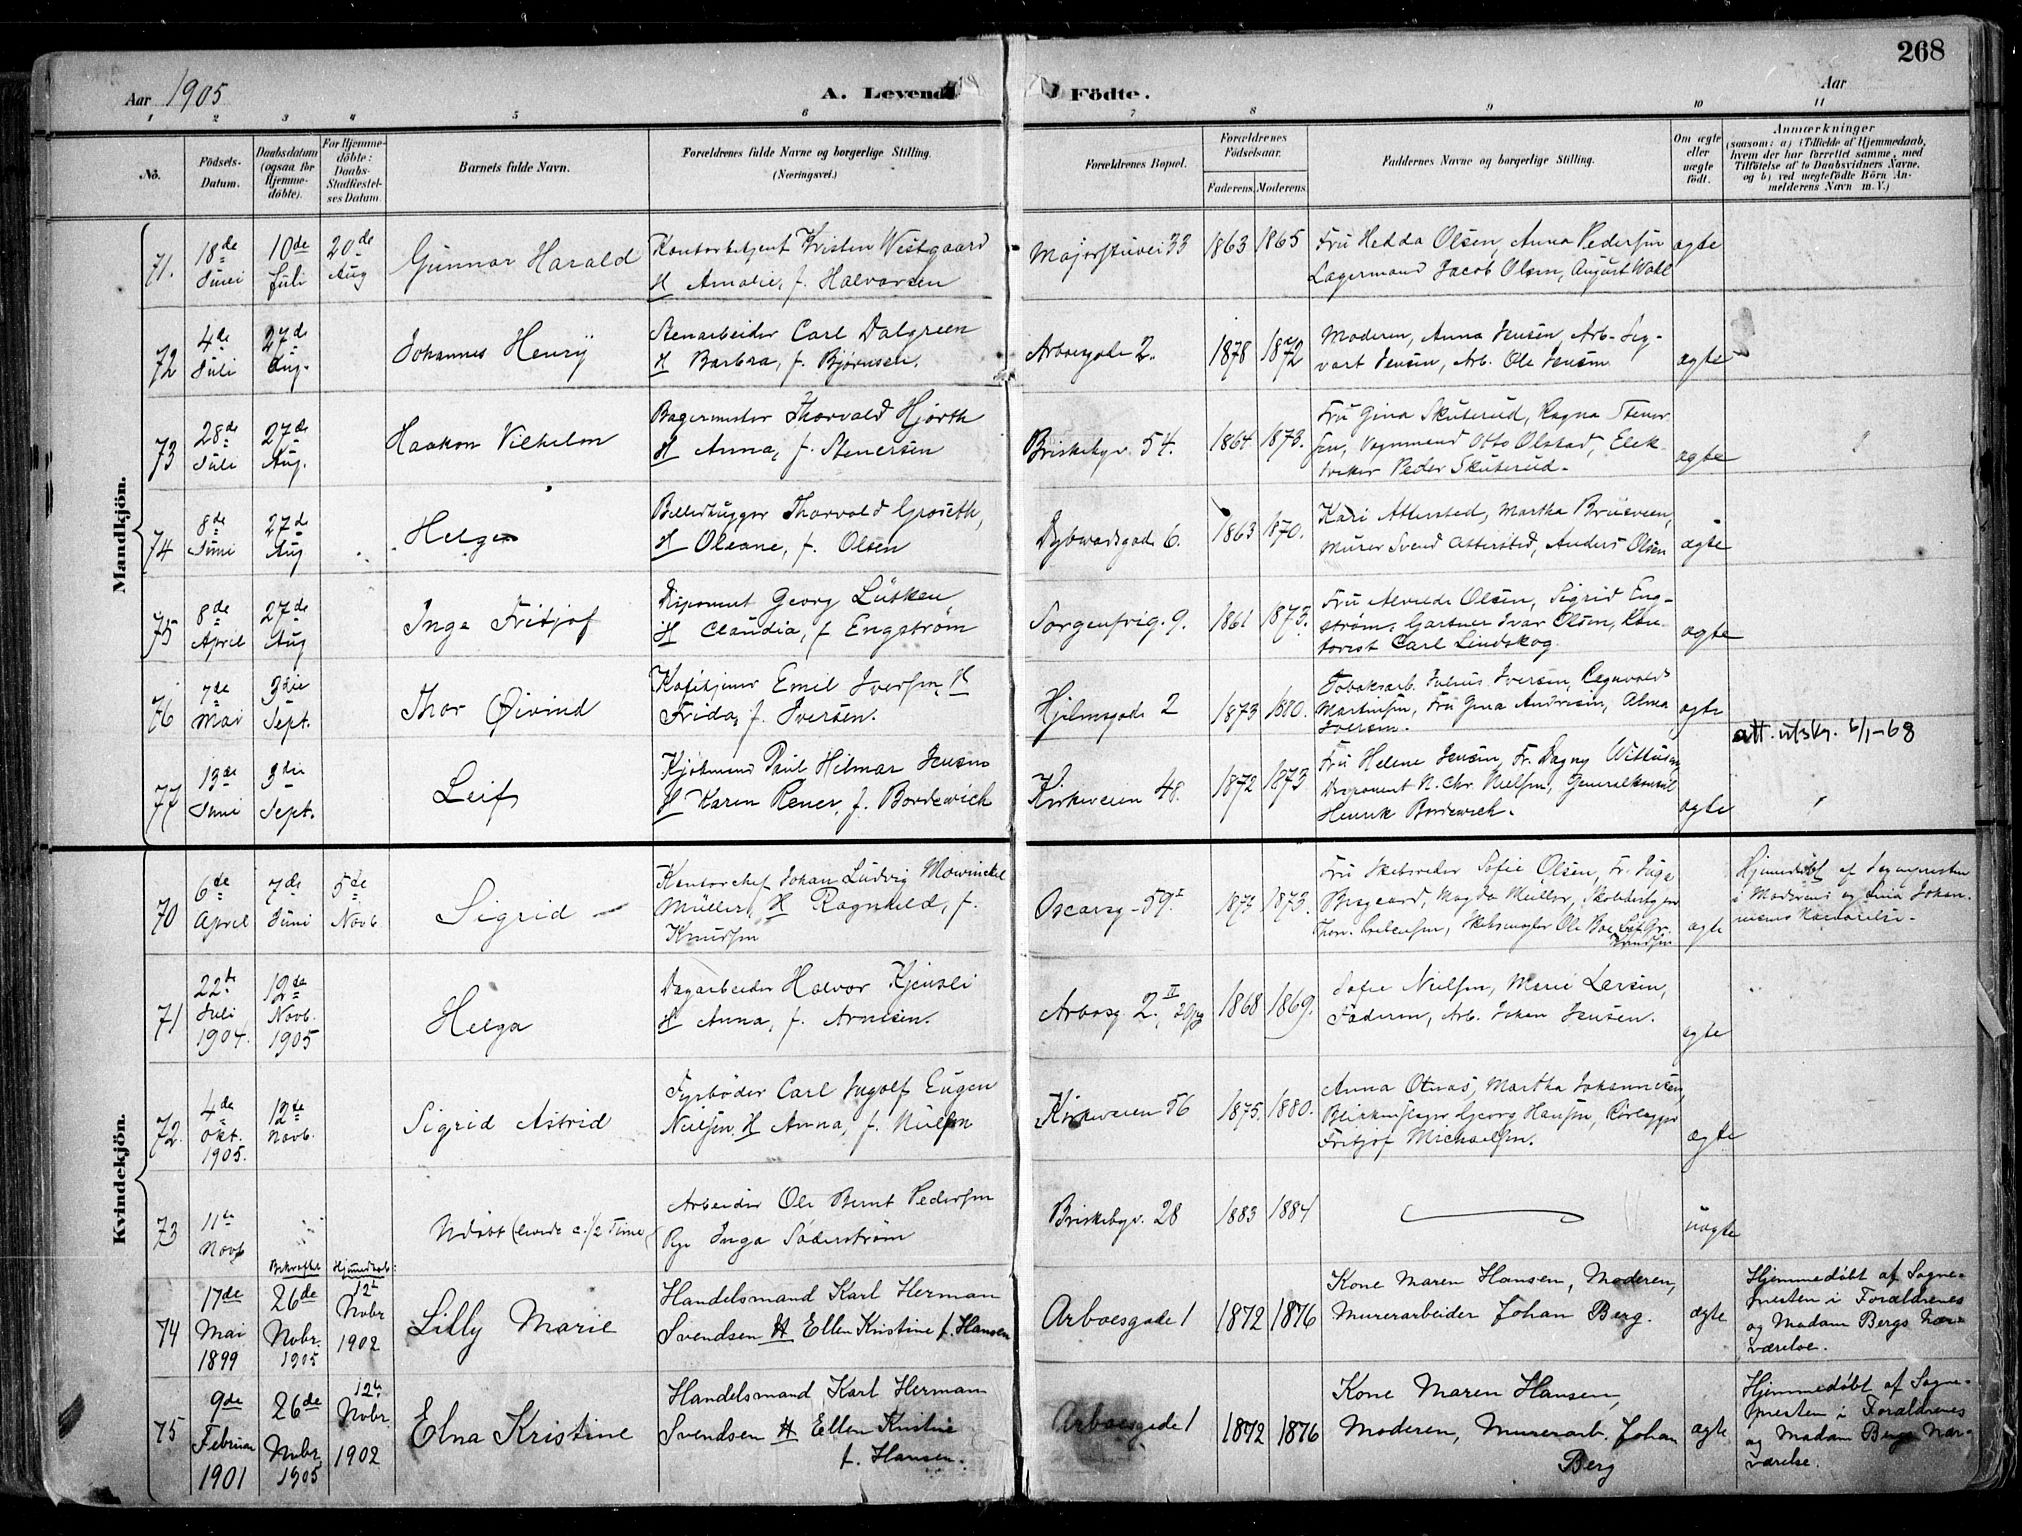 268
Aar 1905
A. Levende Födte.
Aar
1 2 3 4 5 6 7 8 9 10 11
No.
Födsels-Datum.
Daabsdatum (ogsaa for Hjemmedöbte).
For Hjemmedöbte: Daabs-Stadfæstelses Datum.
Barnets fulde Navn.
Forældrenes fulde Navne og borgerlige Stilling.
(Næringsvei.)
Forældrenes Bopæl.
Forældrenes Födselsaar.
Faderens. Moderens.
Faddernes Navne og borgerlige Stilling.
Om ægte eller uægte födt.
Anmærkninger
(saasom: a) i Tilfælde af Hjemmedaab, hvem der har forrettet samme, med Tilföielse af to Daabsvidners Navne, og b) ved uægtefödte Börn Anmelderens Navn m. V.)
Mandkjön.
71. 18de Juni 10de Juli 20de Aug Gunnar Harald Kontorbetjent Kristen Westgaard
H Amalie, f. Halvorsen Majorstuvei 33 1863 1865 Fru Hedda Olsen, Anna Pedersen
Lagermand Jacob Olsen, August Wahl ægte
72 4de Juli 27de Aug. Johannes Henry Stenarbeider Carl Dalgreen
H Barbra, f. Bjørnsen. Arboesgade 2. 1878 1872 Moderen, Anna Jensen, Arb. Sig-
vart Jensen, Arb. Ole Jensen ægte
73 28de Juli 27de Aug. Haakon Vilhelm Bagermester Thorvald Hjorth
H Anna, f. Stenersen Briskebyv. 54. 1864 1873. Fru Gina Skuterud, Ragna Stener-
sen, Vognmand Otto Olstad, Elek-
triker Peder Skuterud. ægte
74 8de Juni 27de Aug Helge Billedhugger Thorvald Groseth,
H Oleane, f. Olsen Dybwadsgade 6. 1863 1870. Kari Atterstad, Martha Brusveen,
Murer Svend Atterstad, Anders Olsen ægte
75 8de April 27de Aug Inge Fritjof Disponent Georg Lütken
H Claudia, f Engstrøm Sorgenfrig. 9. 1861 1873. Fru Alvilde Olsen, Sigrid Eng-
strøm, Gartner Ivar Olsen, Kon-
torist Carl Lindskog. ægte
76 7de Mai 3die Sept. Thor Øivind Emil Iversen, H
Frida, f. Iversen. Hjelmsgade 2 1873 1880. Tobaksarb. Julius Iversen, Ragnvald
Martinsen, Fru Gina Andresen, Alma
Iversen. ægte
att. utskr. 6/1-68
77 13de Juni 3die Sept. Leif Kjøbmand Paul Hilmar Jensen
H Karen Rener, f. Bordewich Kirkeveien 48. 1872 1873 Fru Helene Jensen, Fr. Dagny
Disponent N. Chr. Nielsen, Generalkonsul
Henrik Bordewich. ægte
Kvindekjön.
70 6de April 7de Juni 5de Novb Sigrid Kontorchef Johan Ludvig Mowinckel
Müller, H Ragnhild, f.
Knudsen Oscarsg. 59 I 1873. Fru Skibsreder Sofie Olsen, Fr. Inga
Magda Müller, Skibsmægler Ole Boe,
Knudsen ægte
Hjemmedøbt af Sognepresten
i Moderens og Lina Johan-
nesens Nærværelse.
71 22de Juli 1904. 12te Novb. 1905 Helga Dagarbeider Halvor Kjensli
H Anna, f. Arnesen. Arboesg 2. II 1868 1869. Sofie Nielsen, Marie Larsen,
Faderen, Arb. Johan Jensen. ægte
72. 4de Okt. 1905. 12te Novb. Sigrid Astrid Fyrbøder Carl Ingolf Eugen
Nielsen, H Anna, f. Nielsen Kirkeveien 56 1875. 1880. Anna Otnæs, Martha Johannesen,
Blikkenslager Georg Hansen, Rørlægger
Fritjof Michaelsen. ægte
73 11te Novb Udøbt (levede c. 1/2 Time) Arbeider Ole Bernt Pedersen
Pige Inga Søderstrøm Briskebyv. 28 1883 1884 uægte
74 17de Mai 1899 Bekræftet 26de Nvbr. 1905 Hjemmedøbt: 12te Nvbr 1902 Lilly Marie Handelsmand Karl Herman
Svendsen H Ellen Kristine f. Hansen Arboesgade 1 1872 1876 Kone Maren Hansen, Moderen,
Murerarbeider Johan Berg. ægte
Hjemmedøbt af Sogne-
presten i Forældrenes
og Madam Bergs Nær-
værelse.
75 9de Februar 1901 26de Nvbr. 1905 12te Nvbr. 1902 Elna Kristine Handelsmand Karl Herman
Svendsen H Ellen Kristine
f. Hansen. Arboesgade 1 1872 1876 Kone Maren Hansen,
Moderen, Murerarb. Johan
Berg ægte
Hjemmedøbt af Sogne-
presten i Forældrenes
og Madam Bergs Nær-
værelse.